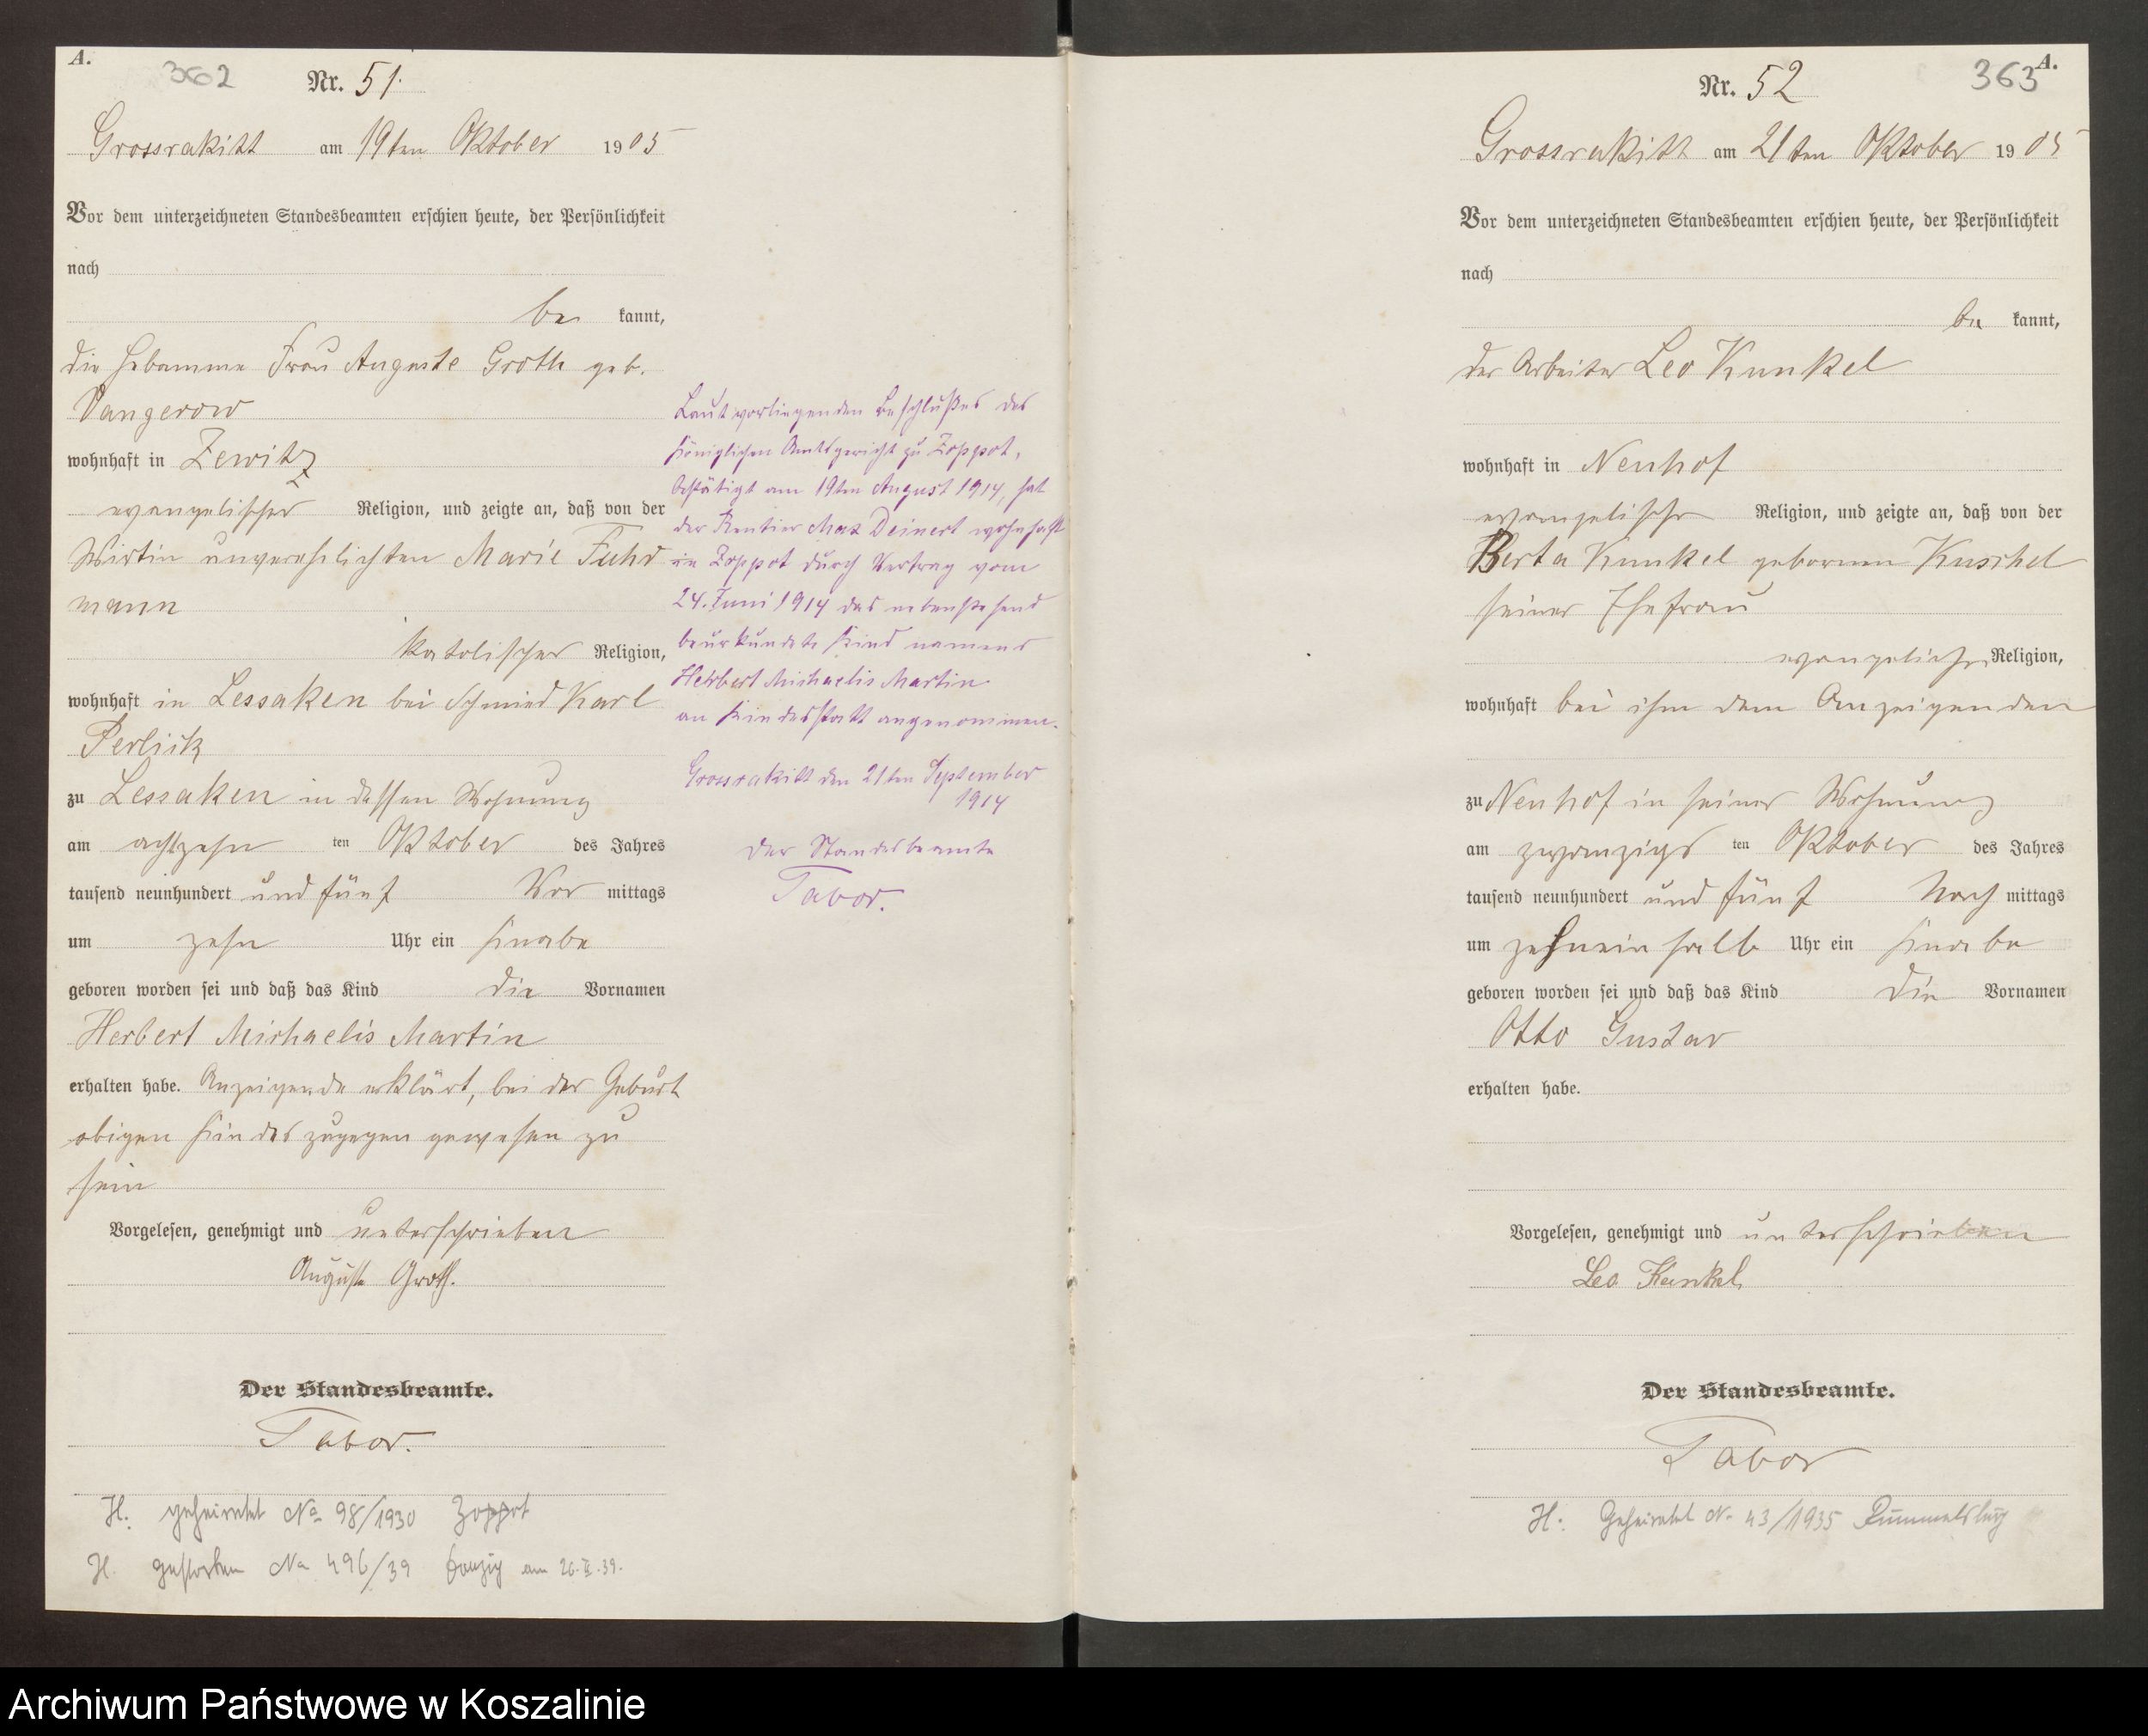 A.
362
Nr. 51.
Grossrakitt am 19ten Oktober 1905
Vor dem unterzeichneten Standesbeamten erschien heute, der Persönlichkeit
nach
be kannt,
die Hebamme Frau Auguste Groth geb.
Vangerow
wohnhaft in Zewitz
evangelischer Religion, und zeigte an, daß von der
Wirtin unverehelichten Marie Fuhr
mann
katolischer Religion,
wohnhaft in Lessaken bei Schmied Karl
Perlick
zu Lessaken in dessen Wohnung
am achtzehn ten Oktober des Jahres
tausend neunhundert und fünf Vor mittags
um zehn Uhr ein Knabe
geboren worden sei und daß das Kind die Vornamen
Herbert Michaelis Martin
erhalten habe. Anzeigende erklärt, bei der Geburt
obigen Kindes zugegen gewesen zu
sein
Vorgelesen, genehmigt und unterschrieben
Auguste Groth.
Der Standesbeamte.
Tabor.
H. geheiratet No 98/1930 Zoppot
H. gestorben No 496/39 Danzig am 26.II.39.
Laut vorliegenden Beschlußes des
Königlichen Amtsgericht zu Zoppot,
bestätigt am 19ten August 1914, hat
der Rentier Max Deinert wohnhaft
in Zoppot durch Vertrag vom
24. Juni 1914 das nebenstehend
beurkundete Kind namens
Herbert Michaelis Martin
an Kindesstatt angenommen.
Grossrakitt den 21ten September
1914
Der Standesbeamte
Tabor.
363
A.
Nr. 52
Grossrakitt am 21ten Oktober 1905
Vor dem unterzeichneten Standesbeamten erschien heute, der Persönlichkeit
nach
be kannt,
der Arbeiter Leo Kunkel
wohnhaft in Neuhof
evangelischer Religion, und zeigte an, daß von der
Berta Kunkel gebornen Kuschel
seiner Ehefrau
evangelischer Religion,
wohnhaft bei ihm dem Anzeigenden
zu Neuhof in seiner Wohnung
am zwanzigs ten Oktober des Jahres
tausend neunhundert und fünf Nach mittags
um zehneinhalb Uhr ein Knabe
geboren worden sei und daß das Kind die Vornamen
Otto Gustav
erhalten habe.
Vorgelesen, genehmigt und unterschrieben
Leo Kunkel
Der Standesbeamte.
Tabor
H. Geheiratet N. 43/1935 Rummelsburg
Archiwum Państwowe w Koszalinie